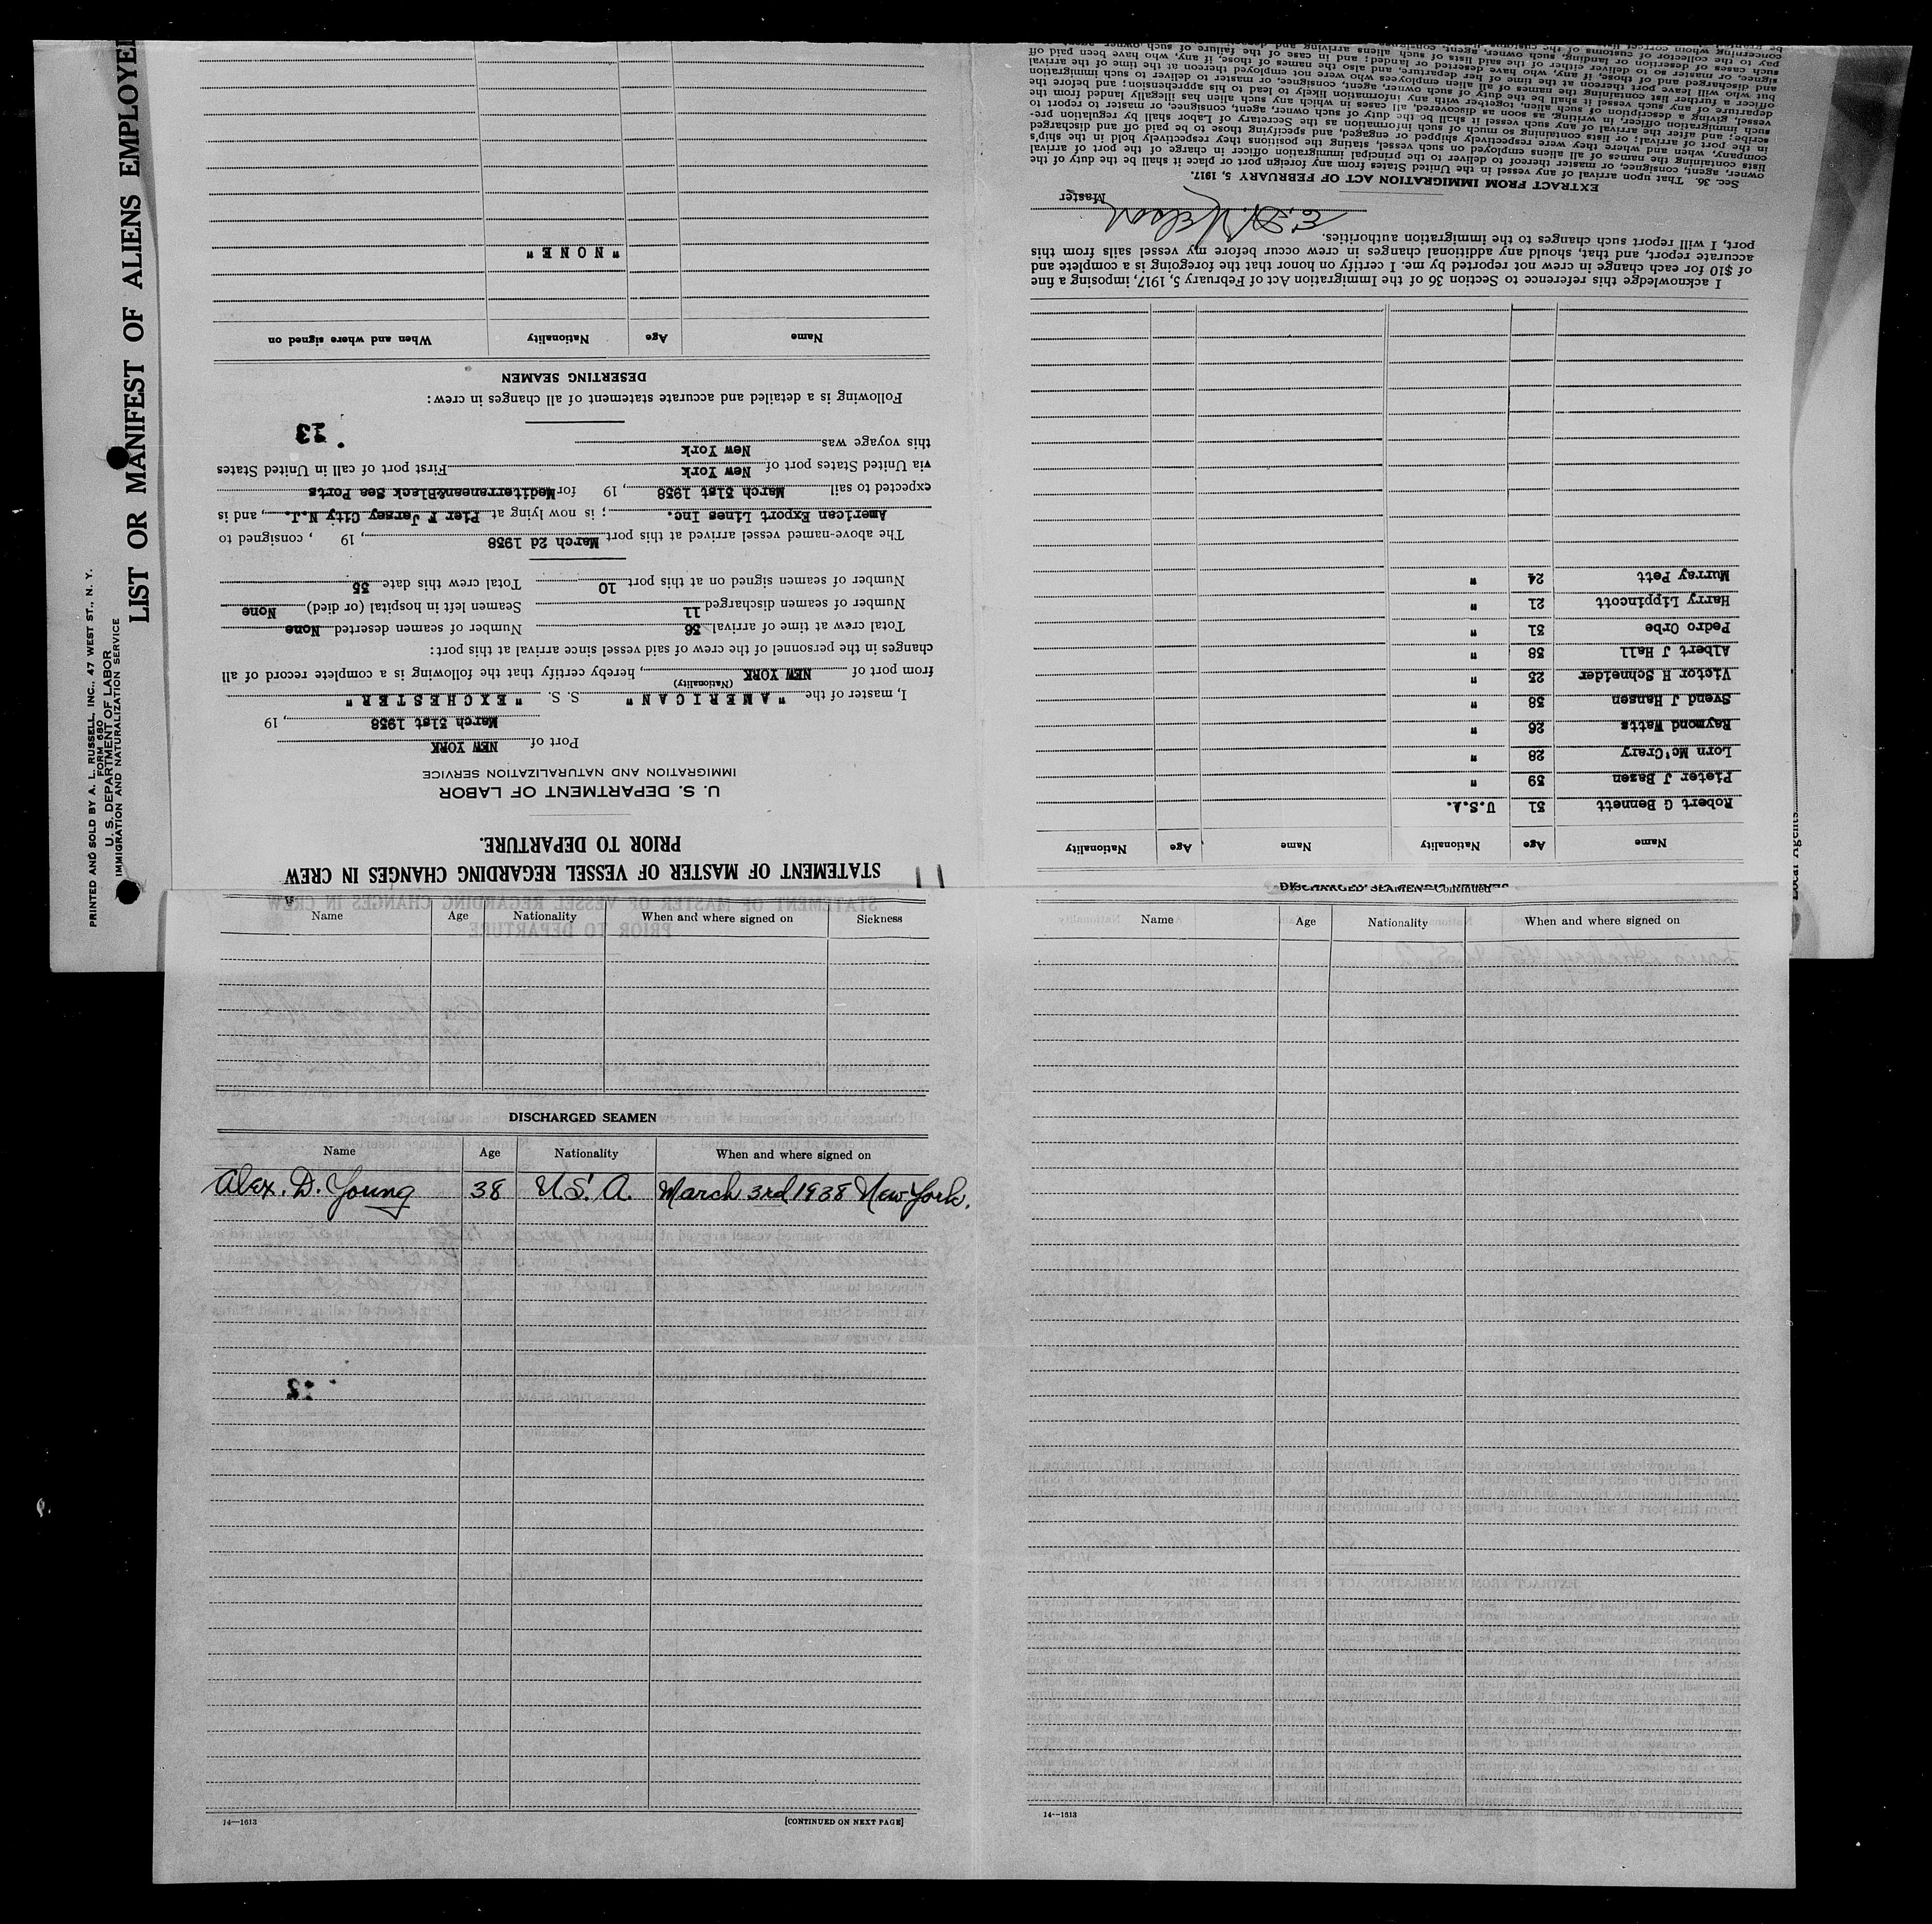 PRINTED AND SOLD BY A. L. RUSSELL, INC., 47 WEST ST., N. Y.
FORM 680
U. S. DEPARTMENT OF LABOR
IMMIGRATION AND NATURALIZATION SERVICE
LIST OR MANIFEST OF ALIENS EMPLOYE
STATEMENT OF MASTER OF VESSEL REGARDING CHANGES IN CREW
PRIOR TO DEPARTURE.
U. S. DEPARTMENT OF LABOR
IMMIGRATION AND NATURALIZATION SERVICE
Port of NEW YORK
March 31st 1938, 19
I, master of the "AMERICAN" S. S. "EXCHESTER"
(Nationality)
from port of NEW YORK, hereby certify that the following is a complete record of all
changes in the personnel of the crew of said vessel since arrival at this port:
Total crew at time of arrival 36 Number of seamen deserted None
Number of seamen discharged 11 Seamen left in hospital (or died) None
Number of seamen signed on at this port 10 Total crew this date 35
The above-named vessel arrived at this port March 2d 1938, 19 , consigned to
American Export Lines Inc. ; is now lying at Pier F Jersey City N.J., and is
expected to sail March 31st 1938, 19 for Mediterranean&Black Sea Ports
via United States port of New York First port of call in United States
this voyage was New York
23
Following is a detailed and accurate statement of all changes in crew:
DESERTING SEAMEN
Name Age Nationality When and where signed on
"NONE"
Name Age Nationality Name Age Nationality
Robert G Bennett 31 U.S.A.
Pieter J Bazen 39 "
Lorn Mc'Crary 28 "
Raymond Watts 26 "
Svend J Hansen 38 "
Victor H Schneider 25 "
Albert J Hall 38 "
Pedro Orbe 31 "
Harry Lippincott 21 "
Murray Pett 24 "
I acknowledge this reference to Section 36 of the Immigration Act of February 5, 1917, imposing a fine
of $10 for each change in crew not reported by me. I certify on honor that the foregoing is a complete and
accurate report, and that, should any additional changes in crew occur before my vessel sails from this
port, I will report such changes to the immigration authorities.
Master
EXTRACT FROM IMMIGRATION ACT OF FEBRUARY 5, 1917.
Sec. 36. That upon arrival of any vessel in the United States from any foreign port or place it shall be the duty of the
owner, agent, consignee, or master thereof to deliver to the principal immigration officer in charge of the port of arrival
lists containing the names of all aliens employed on such vessel, stating the positions they respectively hold in the ships
company, when and where they were respectively shipped or engaged, and specifying those to be paid off and discharged
in the port of arrival; or lists containing so much of such information as the Secretary of Labor shall by regulation pre-
scribe; and after the arrival of any such vessel it shall be the duty of such owner, agent, consignee, or master to report to
such immigration officer, in writing, as soon as discovered, all cases in which any such alien has illegally landed from the
vessel, giving a description of such alien, together with any information likely to lead to his apprehension; and before the
departure of any such vessel it shall be the duty of such owner, agent, consignee, or master to deliver to such immigration
officer a further list containing the names of all alien employees who were not employed thereon at the time of the arrival
but who will leave port thereon at the time of her departure, and also the names of those, if any, who have been paid off
and discharged and of those, if any, who have deserted or landed; and in case of the failure of such owner, agent, con-
signee, or master so to deliver either of the said lists of such aliens arriving and departing
such cases of desertion or landing, such owner, agent, consignee
pay to the collector of customs of the customs
concerning whom correct lists
Local Agents
Name Age Nationality When and where signed on Sickness
DISCHARGED SEAMEN
Name Age Nationality When and where signed on
Alex. D. Young 38 U.S.A. March 3rd 1938 New York.
12
14—1613 [CONTINUED ON NEXT PAGE]
DISCHARGED SEAMEN—Continued
Name Age Nationality When and where signed on
14—1613